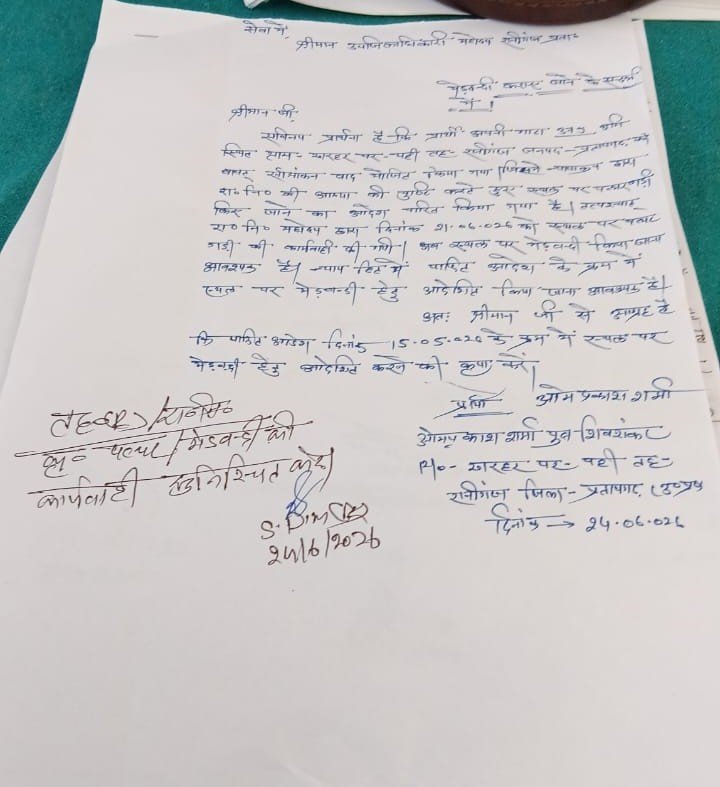 सेवा में,
श्रीमान उपजिलाधिकारी महोदय रानीगंज प्रताप
मेड़बन्दी कराए जाने के सन्दर्भ
में।
श्रीमान जी
सविनय प्रार्थना है कि प्रार्थी अपनी गाटा भूमि
स्थित ग्राम- खरहर पर- पट्टी तह- रानीगंज जनपद- प्रतापगढ़ की
बावत सीमांकन वाद योजित किया गया जिसमें न्यायालय द्वारा
रा० नि० की आख्या की पुष्टि करते हुए स्थल पर पत्थरगड्डी
किए जाने का आदेश पारित किया गया है। तत्पश्चात्
रा० नि० महोदय द्वारा दिनांक 21.06.026 को स्थल पर पत्थर
गड्डी की कार्यवाही की गयी। अब स्थल पर मेड़बन्दी किया जाना
आवश्यक है। न्याय हित में पारित आदेश के क्रम में
स्थल पर मेड़बन्दी हेतु आदेशित किया जाना आवश्यक है।
अतः श्रीमान जी से आग्रह है
कि पारित आदेश दिनांक 15.05.026 के क्रम में स्थल पर
मेड़बन्दी हेतु आदेशित करने की कृपा करें।
प्रार्थी ओम प्रकाश शर्मा
ओमप्रकाश शर्मा पुत्र शिवशंकर
R/o- खरहर पर- पट्टी तह-
रानीगंज जिला- प्रतापगढ़ (उ०प्र०
दिनांक → 24.06.026
मेडबन्दी की
कार्यवाही सुनिश्चित करें।
24/6/2026